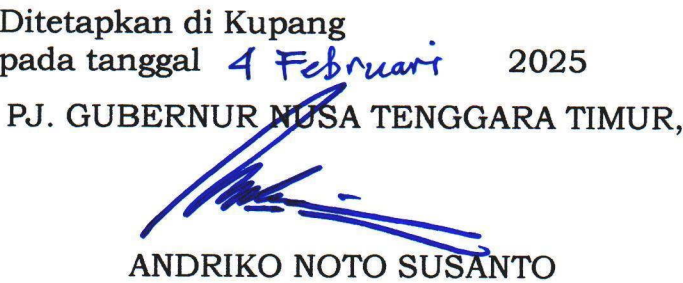 Ditetapkan di Kupang
pada tanggal 4 Februari 2025
PJ. GUBERNUR NUSA TENGGARA TIMUR,
ANDRIKO NOTO SUSANTO